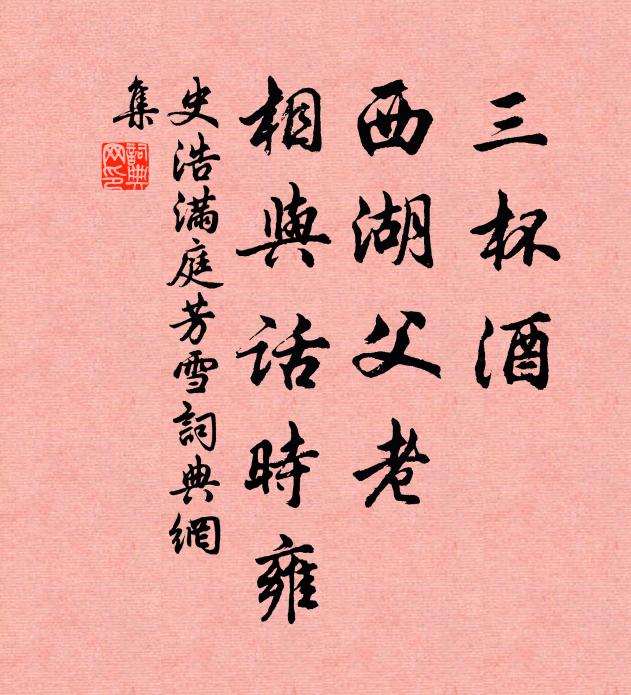 三杯酒
西湖父老
相與話時雍
史浩滿庭芳雪詞典網
集
詞典
网印